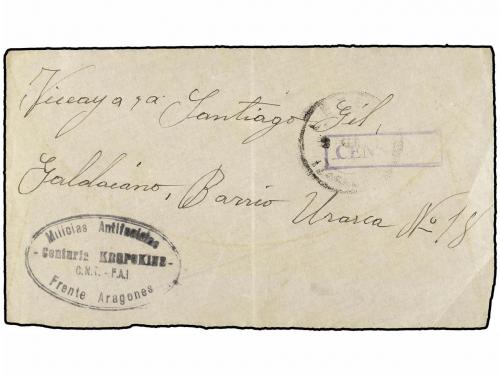 Vizcaya a Santiago Gil,
CENS
Galdácano, Barrio Urarca Nº 18
Milicias Antifacistas
- Centuria KROPOKINE -
C.N.T. - F.A.I
Frente Aragones